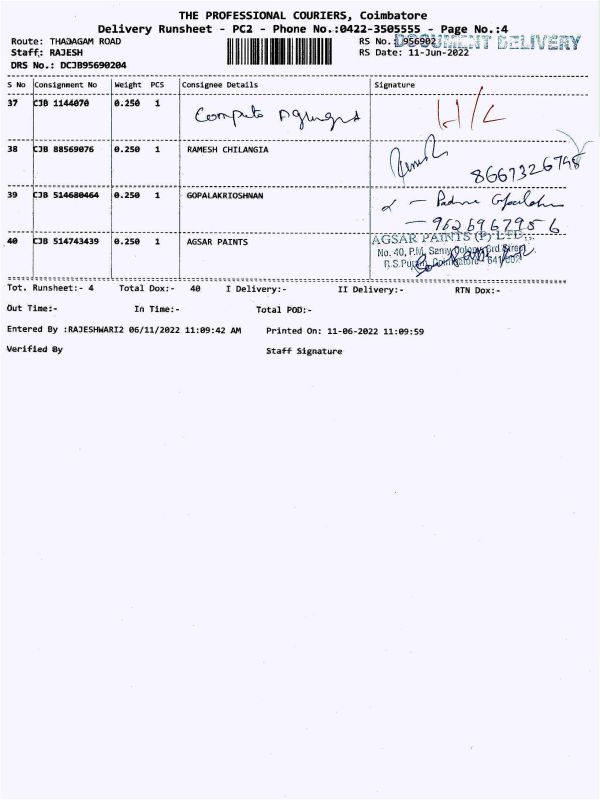 THE PROFESSIONAL COURIERS, Coimbatore
Delivery Runsheet - PC2 - Phone No.:0422-3505555 - Page No.:4
Route: THADAGAM ROAD RS No.:956902 DOCUMENT DELIVERY
Staff: RAJESH RS Date: 11-Jun-2022
DRS No.: DCJB95690204
S No Consignment No Weight PCS Consignee Details Signature
37 CJB 1144070 0.250 1
38 CJB 88569076 0.250 1 RAMESH CHILANGIA 8667326748
39 CJB 514680464 0.250 1 GOPALAKRIOSHNAN
9626967956
40 CJB 514743439 0.250 1 AGSAR PAINTS AGSAR PAINTS (P) LTD.,
No. 40, P.M. Samy Colony 3rd Street,
R.S.Puram, Coimbatore - 641 002.
Tot. Runsheet:- 4 Total Dox:- 40 I Delivery:- II Delivery:- RTN Dox:-
Out Time:- In Time:- Total POD:-
Entered By :RAJESHWARI2 06/11/2022 11:09:42 AM Printed On: 11-06-2022 11:09:59
Verified By Staff Signature